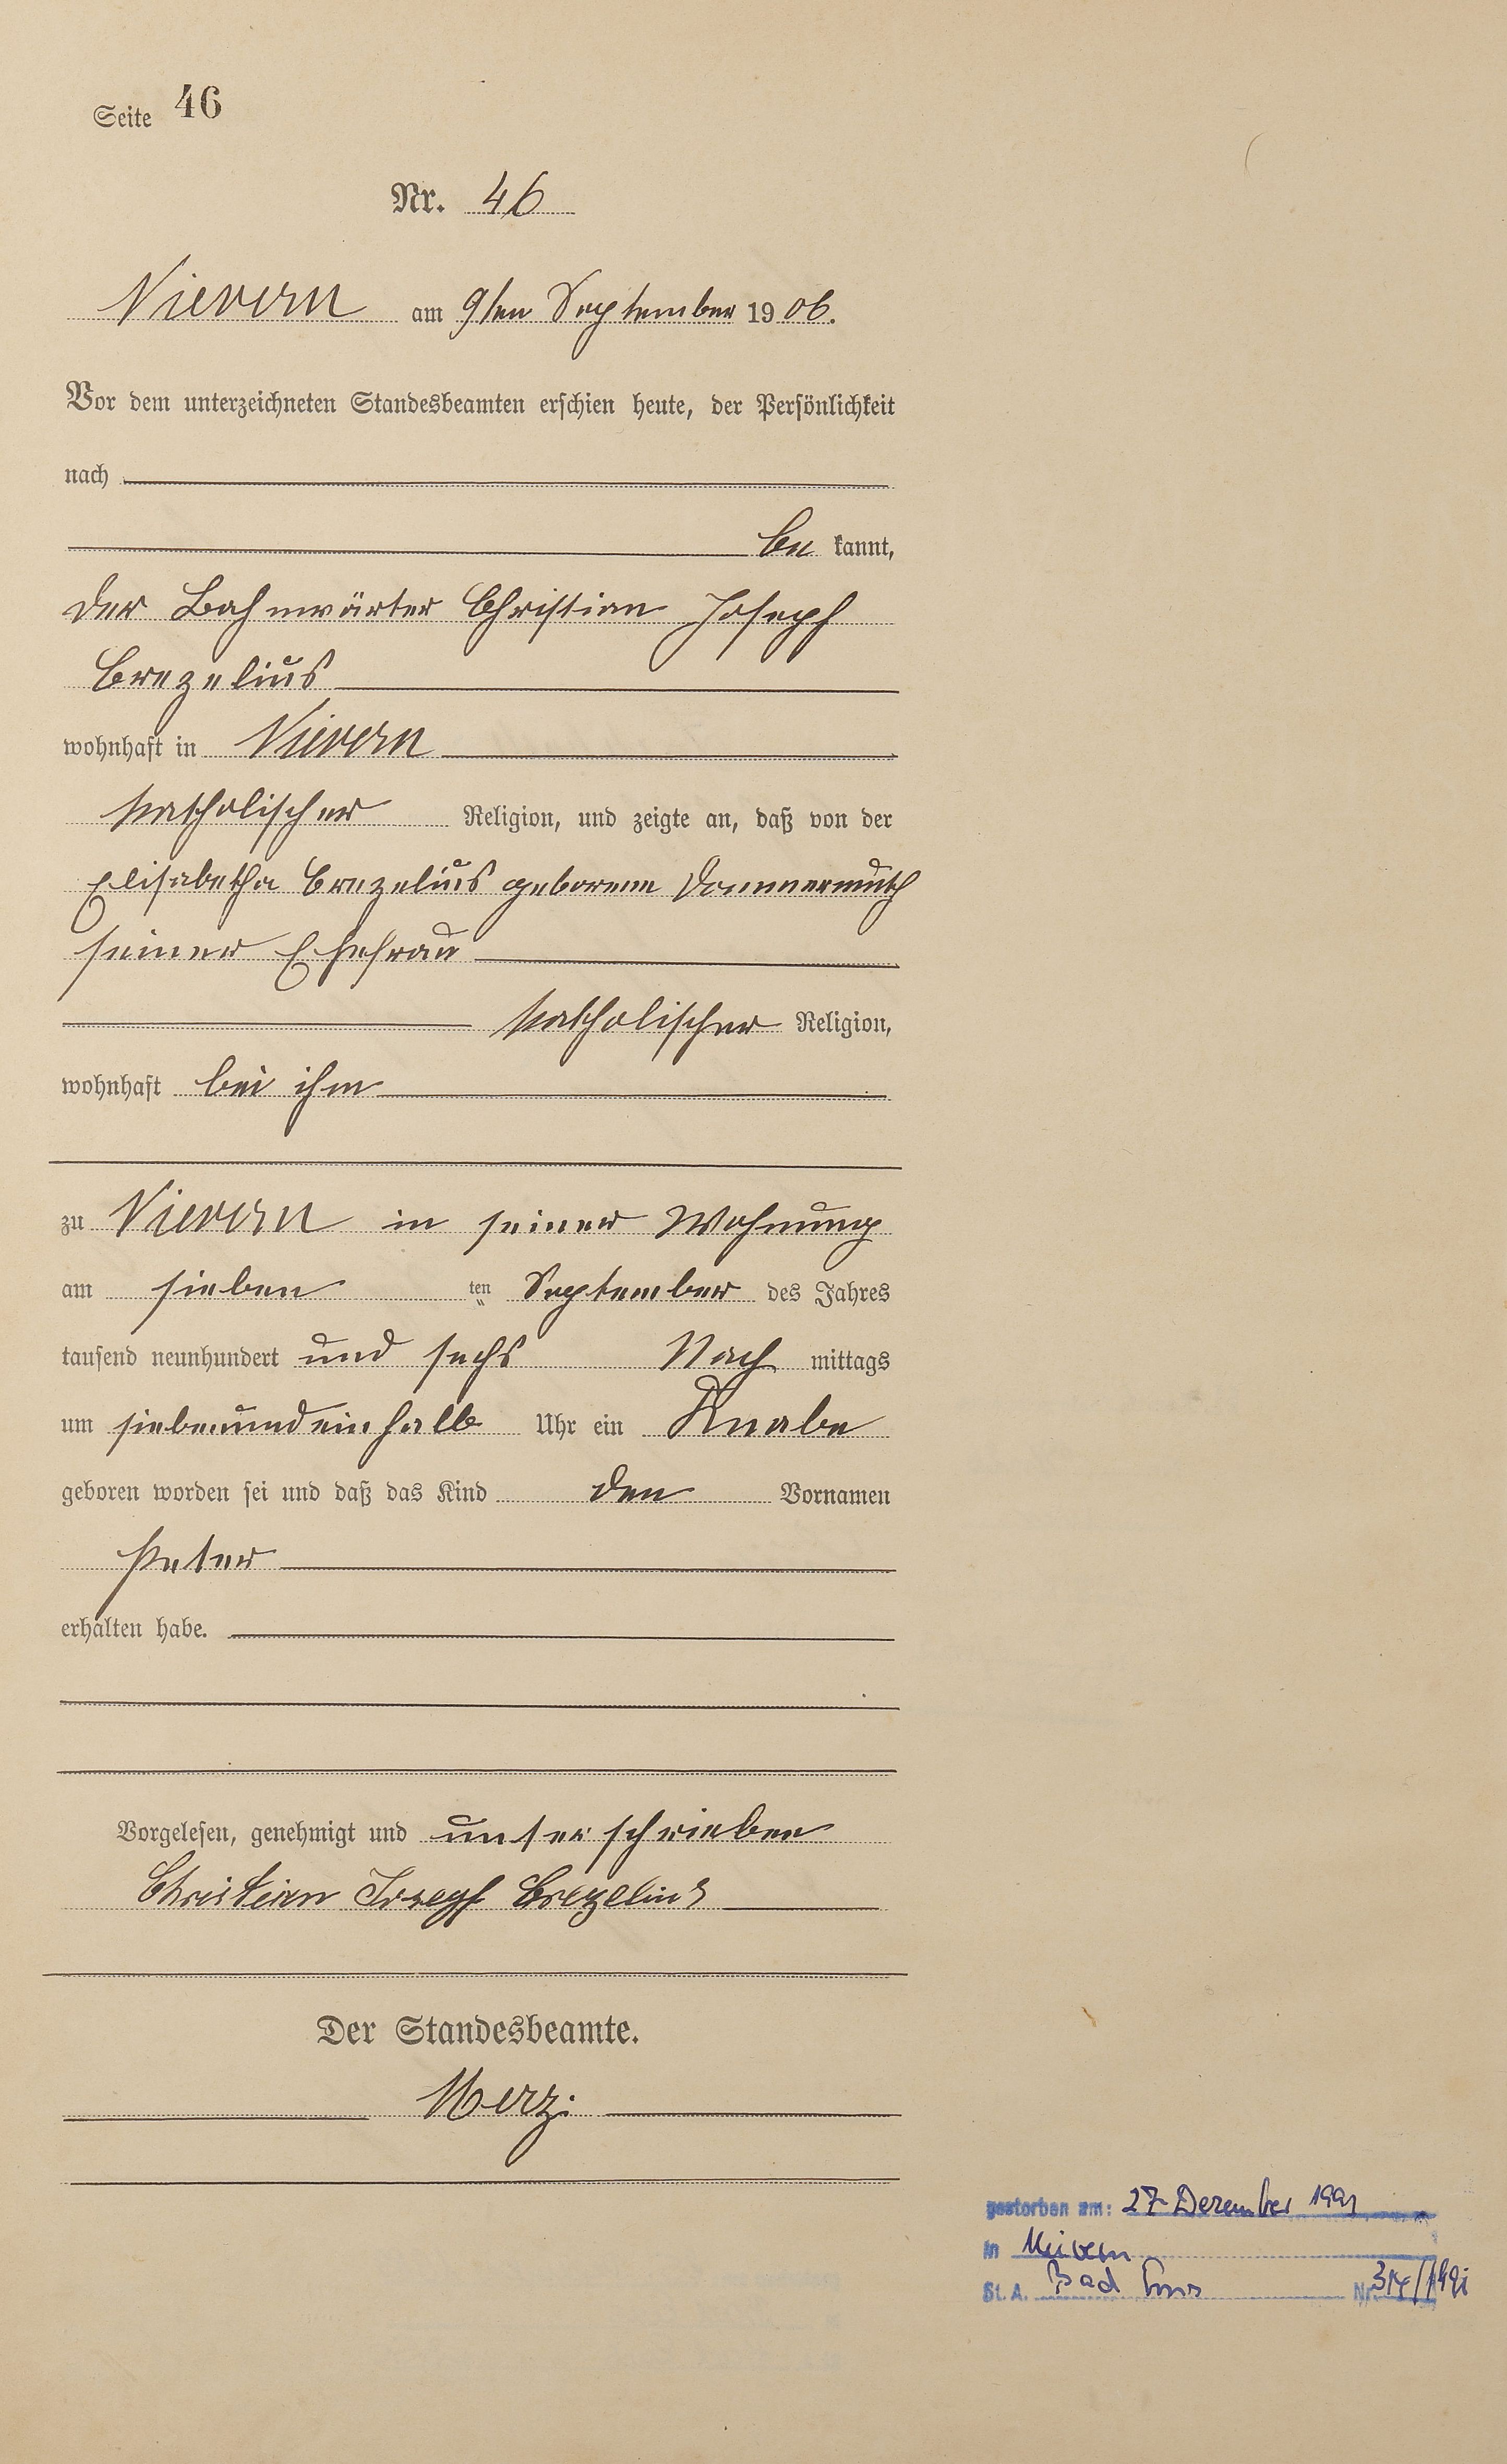 Seite 46
Nr. 46
Nievern am 9ten September 1906.
Vor dem unterzeichneten Standesbeamten erschien heute, der Persönlichkeit
nach
be kannt,
der Bahnwärter Christian Joseph
Crezelius
wohnhaft in Nievern
katholischer Religion, und zeigte an, daß von der
Elisabetha Crezelius geborene Dommermuth
seiner Ehefrau
katholischer Religion,
wohnhaft bei ihm
zu Nievern in seiner Wohnung
am sieben ten September des Jahres
tausend neunhundert und sechs Nach mittags
um siebenundeinhalb Uhr ein Knabe
geboren worden sei und daß das Kind den Vornamen
Peter
erhalten habe.
Vorgelesen, genehmigt und unterschrieben
Christian Joseph Crezelius
Der Standesbeamte.
Merz.
gestorben am: 27. Dezember 1991
in Nievern
St. A. Bad Ems Nr. /1991